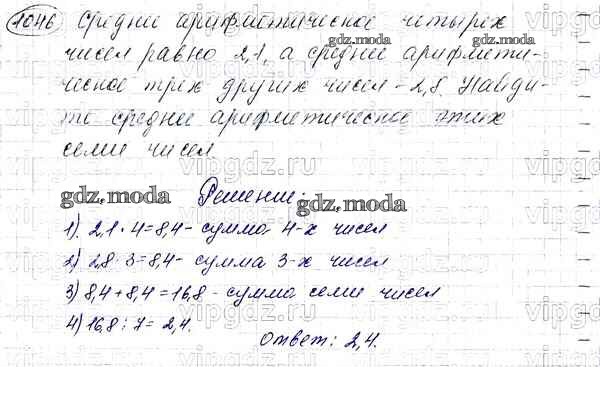 1046 Среднее арифметическое четырех
чисел равно 2,1, а среднее арифмети-
ческое трех других чисел - 2,8. Найди-
те среднее арифметическое этих
семи чисел
gdz.moda
gdz.moda
gdz.moda
gdz.moda
Решение:
gdz.moda
gdz.moda
1). 2,1 · 4 = 8,4 - сумма 4-х чисел
2) 2,8 · 3 = 8,4 - сумма 3-х чисел
3) 8,4 + 8,4 = 16,8 - сумма семи чисел
4) 16,8 : 7 = 2,4.
Ответ: 2,4.
vipgdz.ru